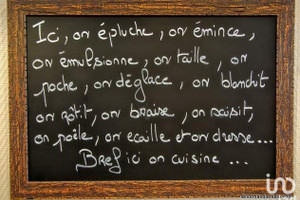 Ici, on épluche, on émince,
on émulsionne, on taille, on
poche, on déglace, on blanchit
on rôtit, on braise, on saisit,
on poêle, on écaille et on dresse...
Bref ici on cuisine ...
iad